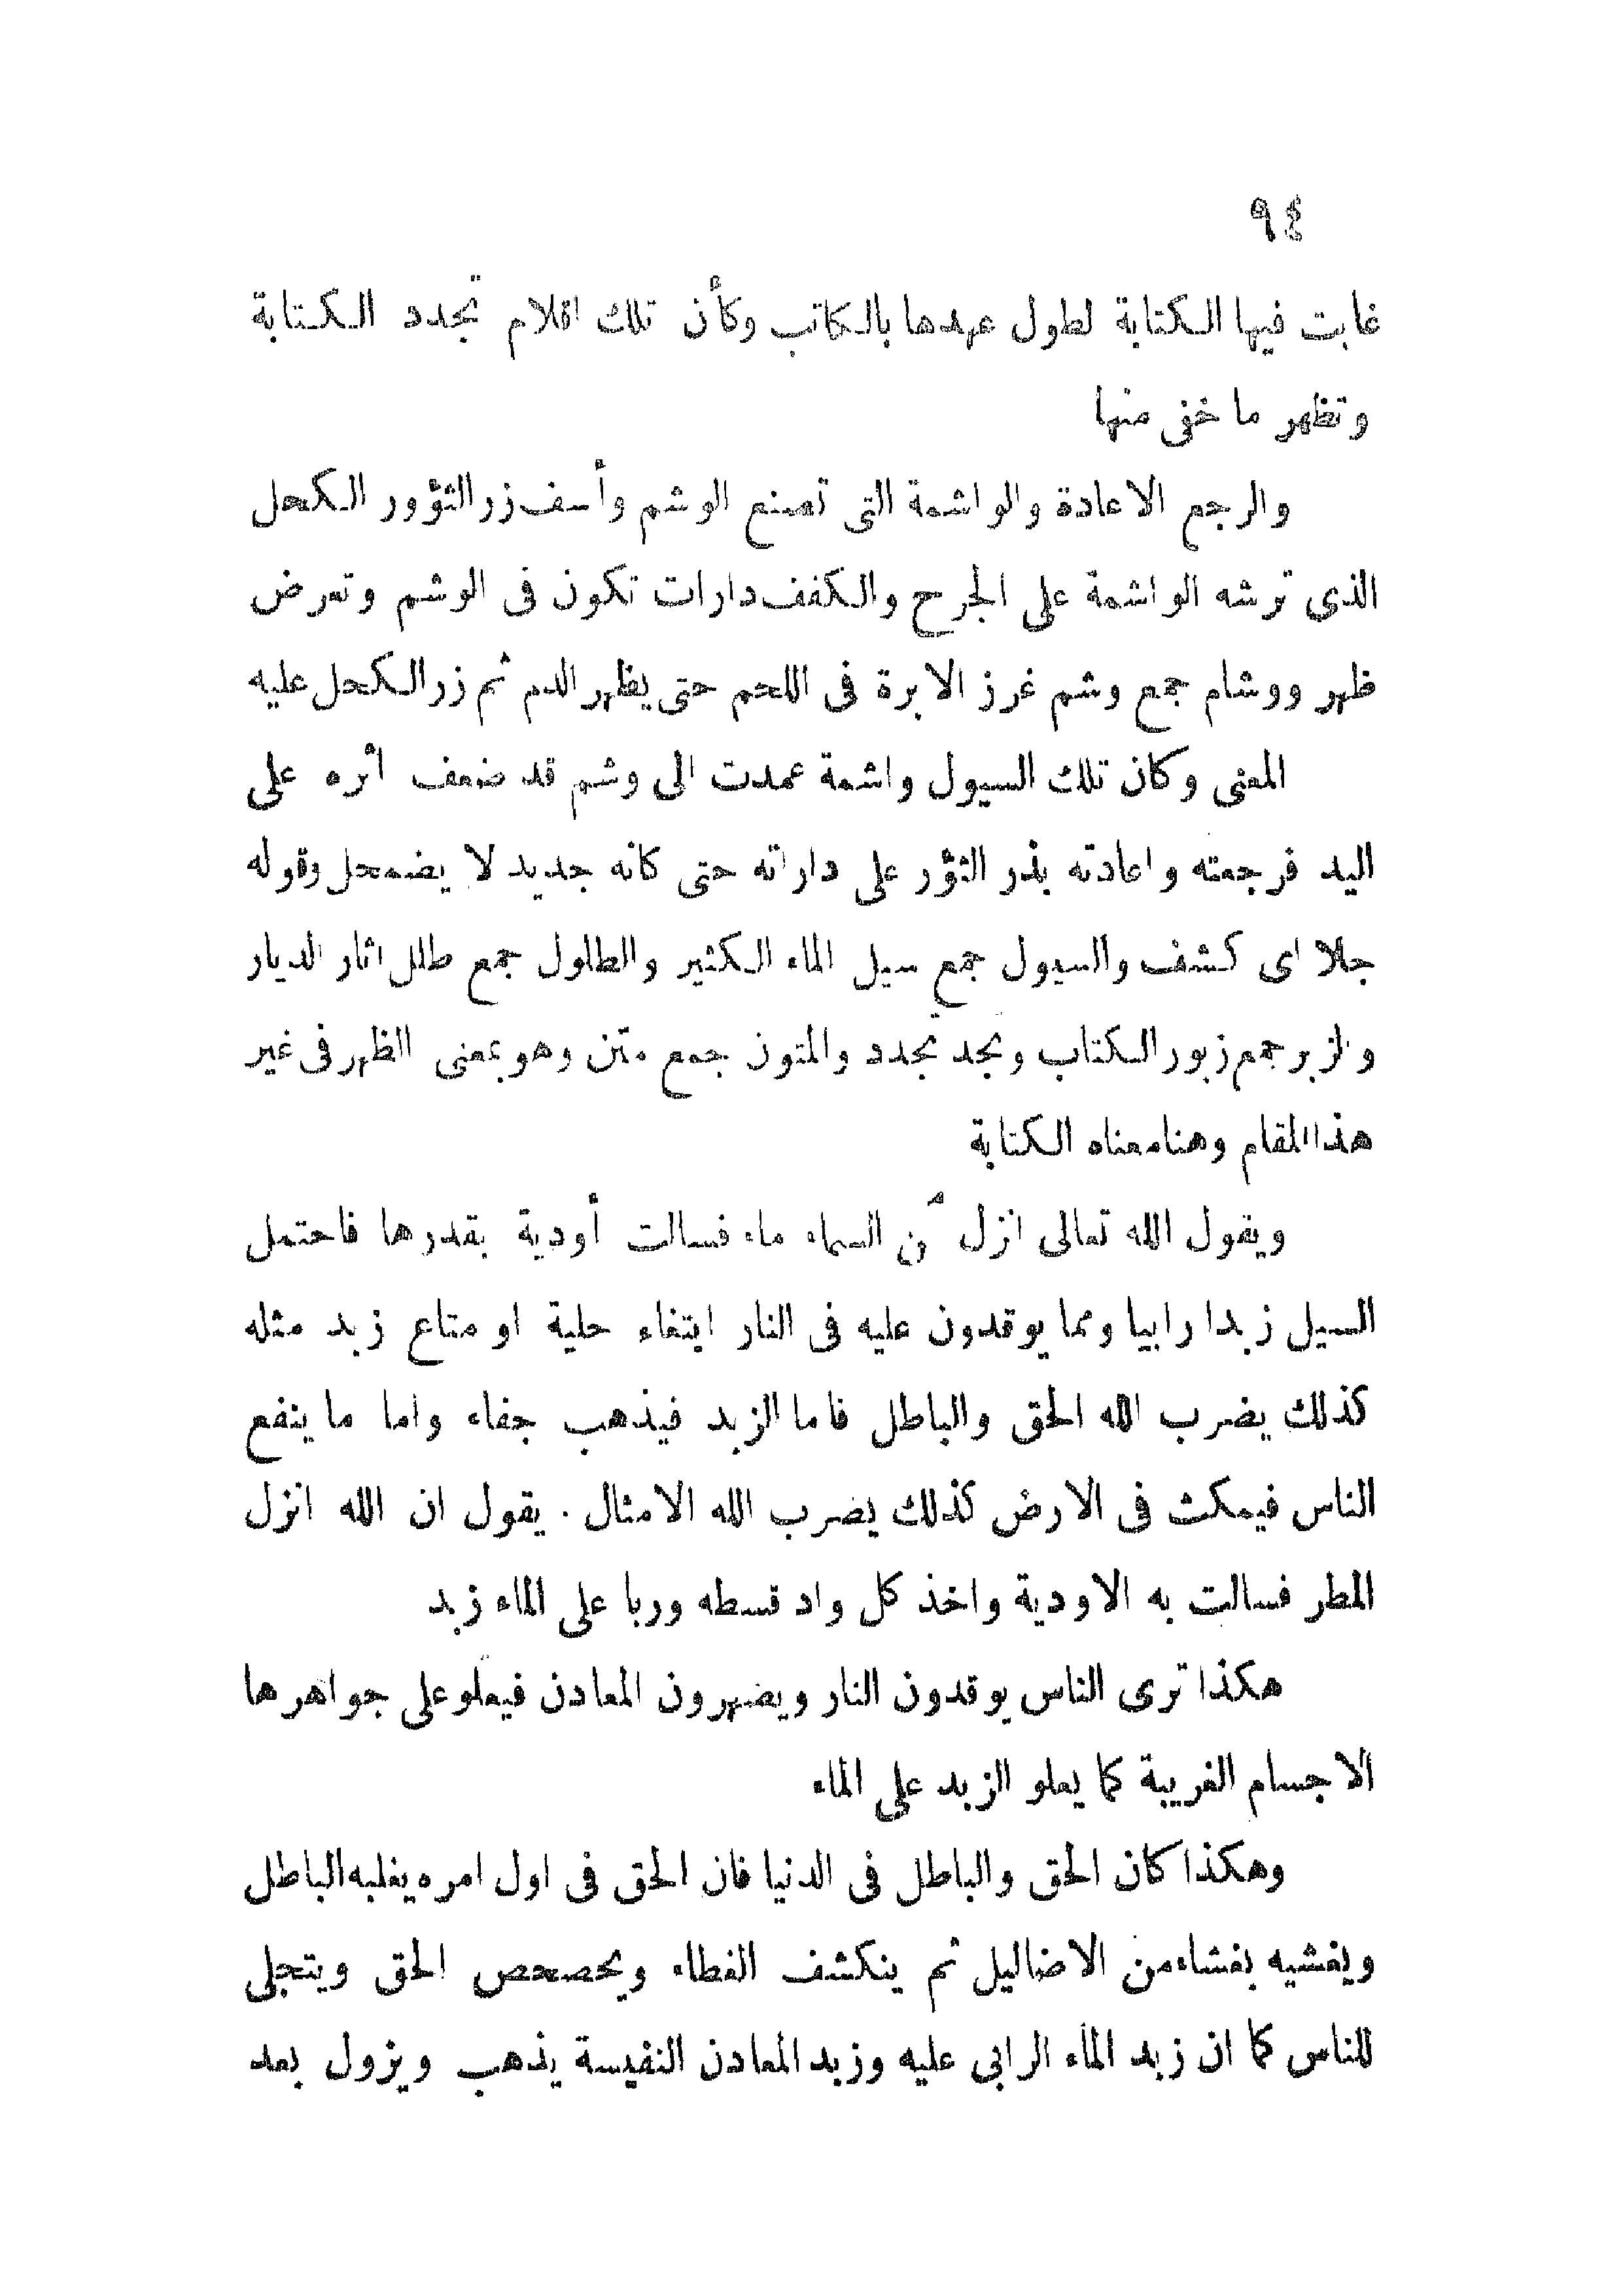 ٩٤
غابت فيها الكتابة لطول عهدها بالكاتب وكأن تلك اقلام تجدد الكتابة
وتظهر ما خفى منها
والرجع الاعادة والواشمة التى تصنع الوشم وأسف زر الثؤور الكحل
الذى ترشه الواشمة على الجرح والكفف دارات تكون فى الوشم وتعرض
ظهر ووشام جمع وشم غرز الابرة فى اللحم حتى يظهر الدم ثم زر الكحل عليه
المعنى وكان تلك السيول واشمة عمدت الى وشم قد ضعف اثره على
اليد فرجعته واعادته بذر الثؤر على داراته حتى كانه جديد لا يضمحل وقوله
جلا اى كشف والسيول جمع سيل الماء الكثير والطلول جمع طلل اثار الديار
والزبر جمع زبور الكتاب وتجد تجدد والمتون جمع متن وهو بمعنى الظهر فى غير
هذا المقام وهنا معناه الكتابة
ويقول الله تعالى انزل من السماء ماء فسالت أودية بقدرها فاحتمل
السيل زبدا رابيا ومما يوقدون عليه فى النار ابتغاء حلية او متاع زبد مثله
كذلك يضرب الله الحق والباطل فاما الزبد فيذهب جفاء واما ما ينفع
الناس فيمكث فى الارض كذلك يضرب الله الامثال . يقول ان الله انزل
المطر فسالت به الاودية واخذ كل واد قسطه وربا على الماء زبد
هكذا ترى الناس يوقدون النار ويضهرون المعادن فيعلو على جواهرها
الاجسام الغريبة كما يعلو الزبد على الماء
وهكذا كان الحق والباطل فى الدنيا فان الحق فى اول امره يغلبه الباطل
ويغشيه بغشاء من الاضاليل ثم ينكشف الغطاء ويحصحص الحق ويتجلى
للناس كما ان زبد الماء الرابى عليه وزبد المعادن النفيسة يذهب ويزول بعد